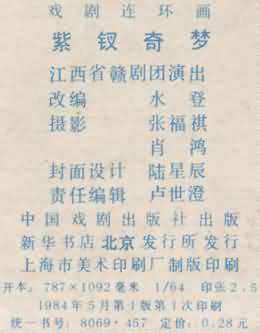 戏剧连环画
紫钗奇梦
江西省赣剧团演出
改编 水登
摄影 张福祺
肖鸿
封面设计 陆星辰
责任编辑 卢世澄
中国戏剧出版社出版
新华书店北京发行所发行
上海市美术印刷厂制版印刷
开本：787×1092毫米 1/64 印张2.5
1984年5月第1版第1次印刷
统一书号：8069·457 定价：0.28元